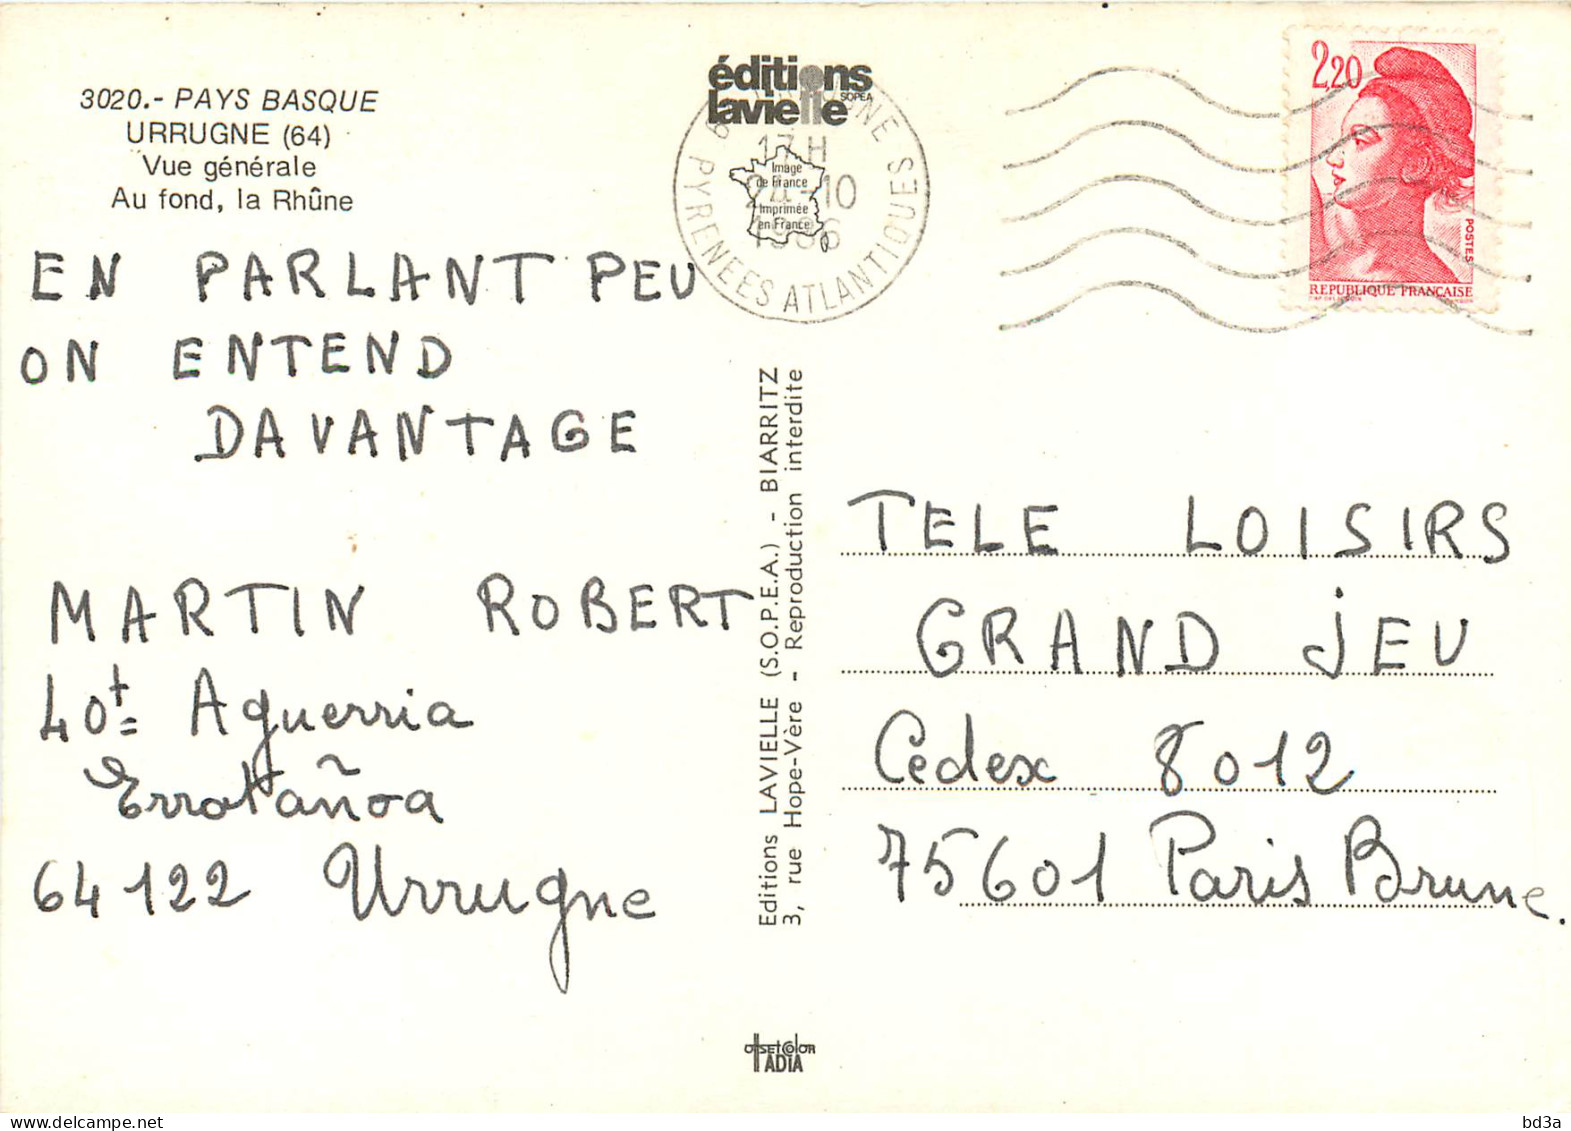 3020.- PAYS BASQUE
URRUGNE (64)
Vue générale
Au fond, la Rhûne
EN PARLANT PEU
ON ENTEND
DAVANTAGE
MARTIN ROBERT
Aguerria
Errotañoa
64122 Urrugne
éditions
lavielle
SOPEA
17H
24-10
1986
PYRENEES ATLANTIQUES
Image
de France
Imprimée
en France
2,20
POSTES
REPUBLIQUE FRANÇAISE
Editions LAVIELLE (S.O.P.E.A.) - BIARRITZ
3, rue Hope-Vère - Reproduction interdite
TELE LOISIRS
GRAND JEU
Cedex 8012
75601 Paris Brune.
OFFSET COLOR
TADIA
bd3a